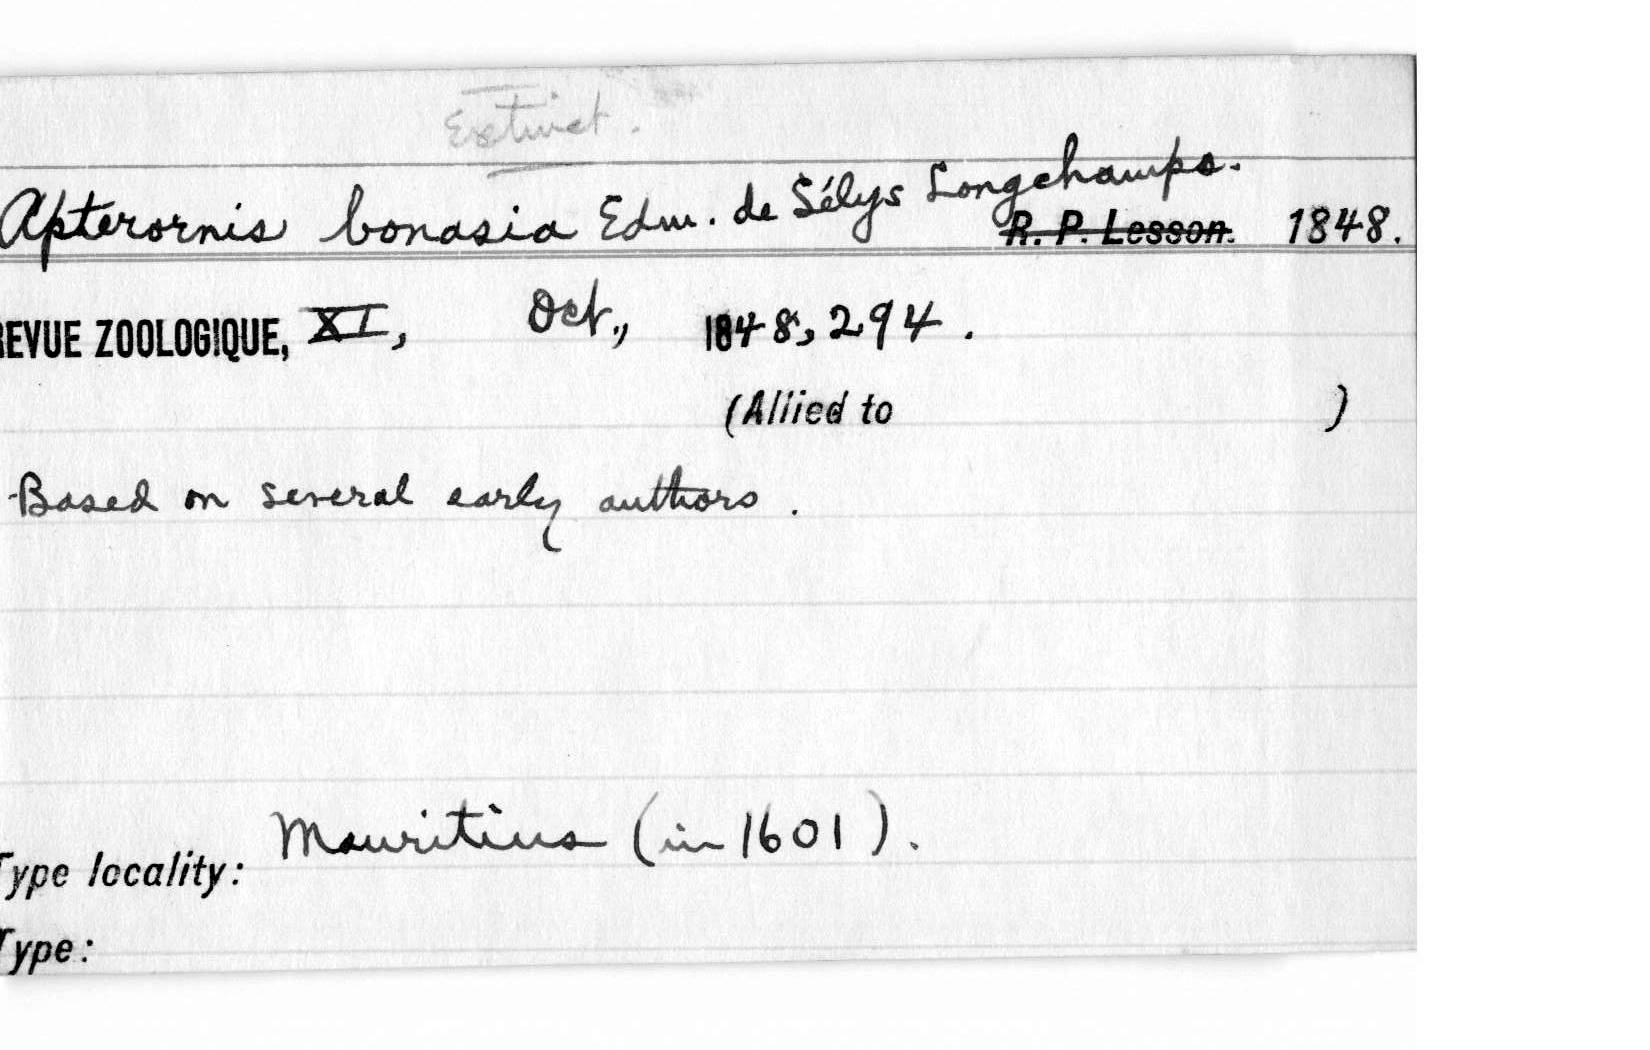 Extinct.
Apterornis bonasia Edm. de Sélys Longchamps.
R. P. Lesson. 1848.
REVUE ZOOLOGIQUE, XI, Oct., 1848, 294.
(Allied to )
Based on several early authors.
Type locality: Mauritius (in 1601).
Type: